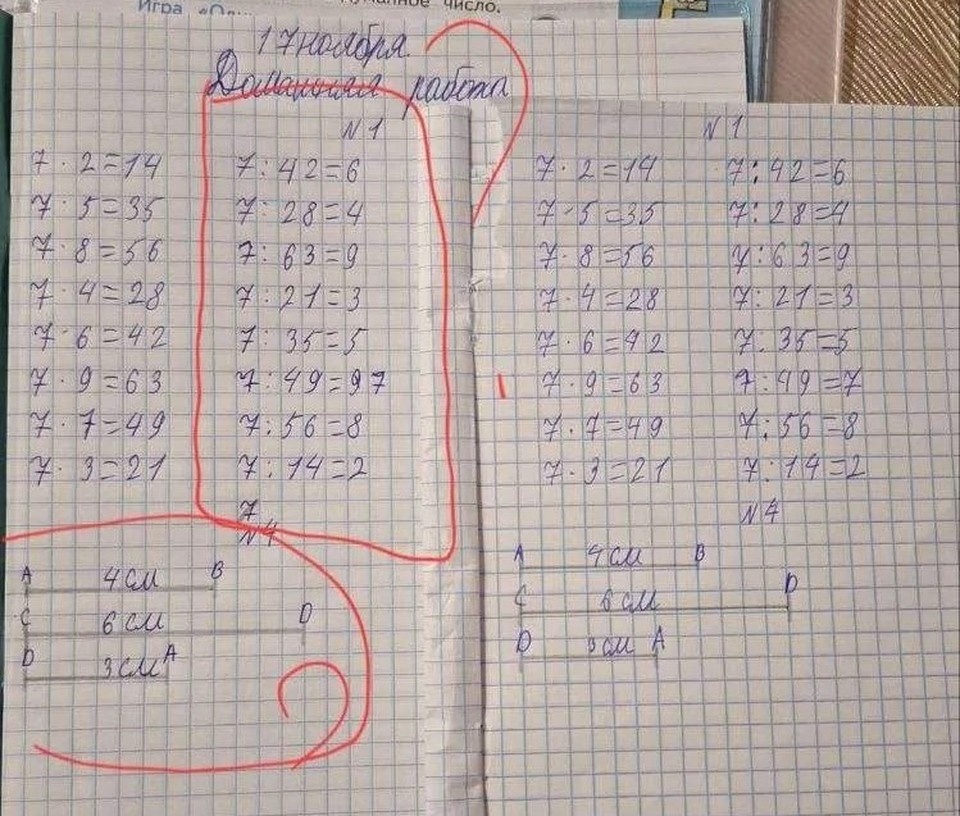 Игра «О
ное число.
17 ноября.
Домашняя работа
N 1
7 · 2=14 7 : 42=6
7 · 5=35 7 : 28=4
7 · 8=56 7 : 63=9
7 · 4=28 7 : 21=3
7 · 6=42 7 : 35=5
7 · 9=63 7 : 49=97
7 · 7=49 7 : 56=8
7 · 3=21 7 : 14=2
7
N 4
A 4 см B
C 6 см D
D 3 см A
N 1
7 · 2=14 7 : 42=6
7 · 5=35 7 : 28=4
7 · 8=56 7 : 63=9
7 · 4=28 7 : 21=3
7 · 6=42 7 : 35=5
7 · 9=63 7 : 49=7
7 · 7=49 7 : 56=8
7 · 3=21 7 : 14=2
N 4
A 4 см B
C 6 см D
D 3 см A